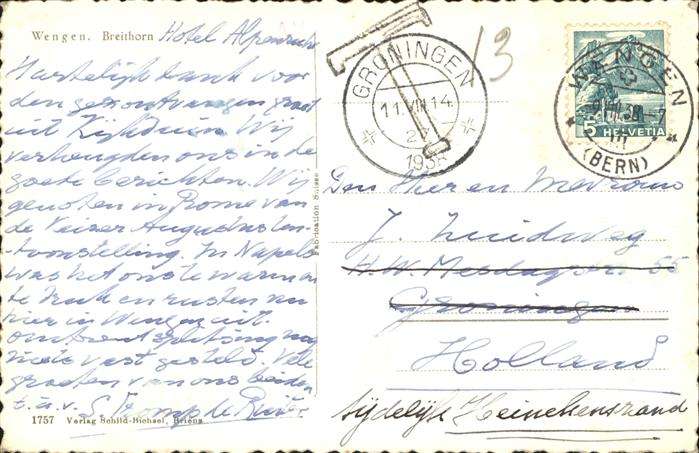 Wengen. Breithorn Hotel Alpenruhe
Hartelijk dank voor
den ontvangen
uit Wij
verheugden ons in de
goede berichten. Wij
genoten in Rome van
de Keizer Augustus ten-
toonstelling. In Napels
was het ons te warm en
te druk en rusten nu
hier in Wengen uit.
nog
niet vast gesteld. Vele
groeten van ons beiden
t.à.v. S. Tromp de
1757 Verlag Schild-Bichsel, Brienz
Fabrication Suisse
GRONINGEN
11.VIII.14
1938
13
WENGEN
(BERN)
5 HELVETIA
Den Heer en Mevrouw
J. Zuidweg
H.W. Mesdagstr. 55
Groningen
Holland
tijdelijk Heinekenszand